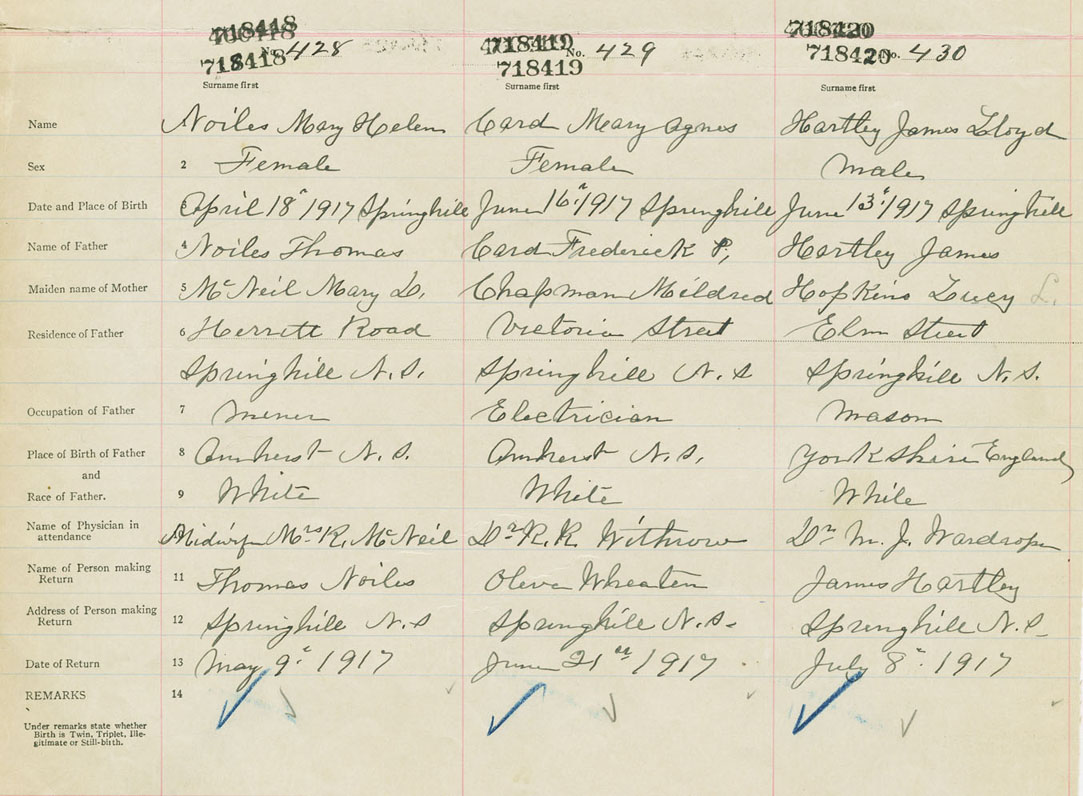 718418 718419 718420
718418 No. 428 718419 No. 429 718420 No. 430
Surname first Surname first Surname first
Name Noiles Mary Helen Card Mary Agnes Hartley James Lloyd
Sex 2 Female Female Male
Date and Place of Birth April 18" 1917 Springhill June 16" 1917 Springhill June 13" 1917 Springhill
Name of Father 4 Noiles Thomas Card Frederick P, Hartley James
Maiden name of Mother 5 McNeil Mary D. Chapman Mildred Hopkins Lucy L.
Residence of Father 6 Herrett Road Victoria Street Elm Street
Springhill N.S. Springhill N.S Springhill N.S.
Occupation of Father 7 Miner Electrician Mason
Place of Birth of Father 8 Amherst N.S. Amherst N.S. Yorkshire England
and
Race of Father. 9 White White White
Name of Physician in
attendance Midwife Mrs R. McNeil Dr R.K. Withrow Dr M.J. Wardrope
Name of Person making
Return 11 Thomas Noiles Oleva Wheaton James Hartley
Address of Person making
Return 12 Springhill N.S Springhill N.S. Springhill N.S.
Date of Return 13 May 9" 1917 June 21st 1917 July 8" 1917
REMARKS 14
Under remarks state whether
Birth is Twin, Triplet, Ille-
gitimate or Still-birth.